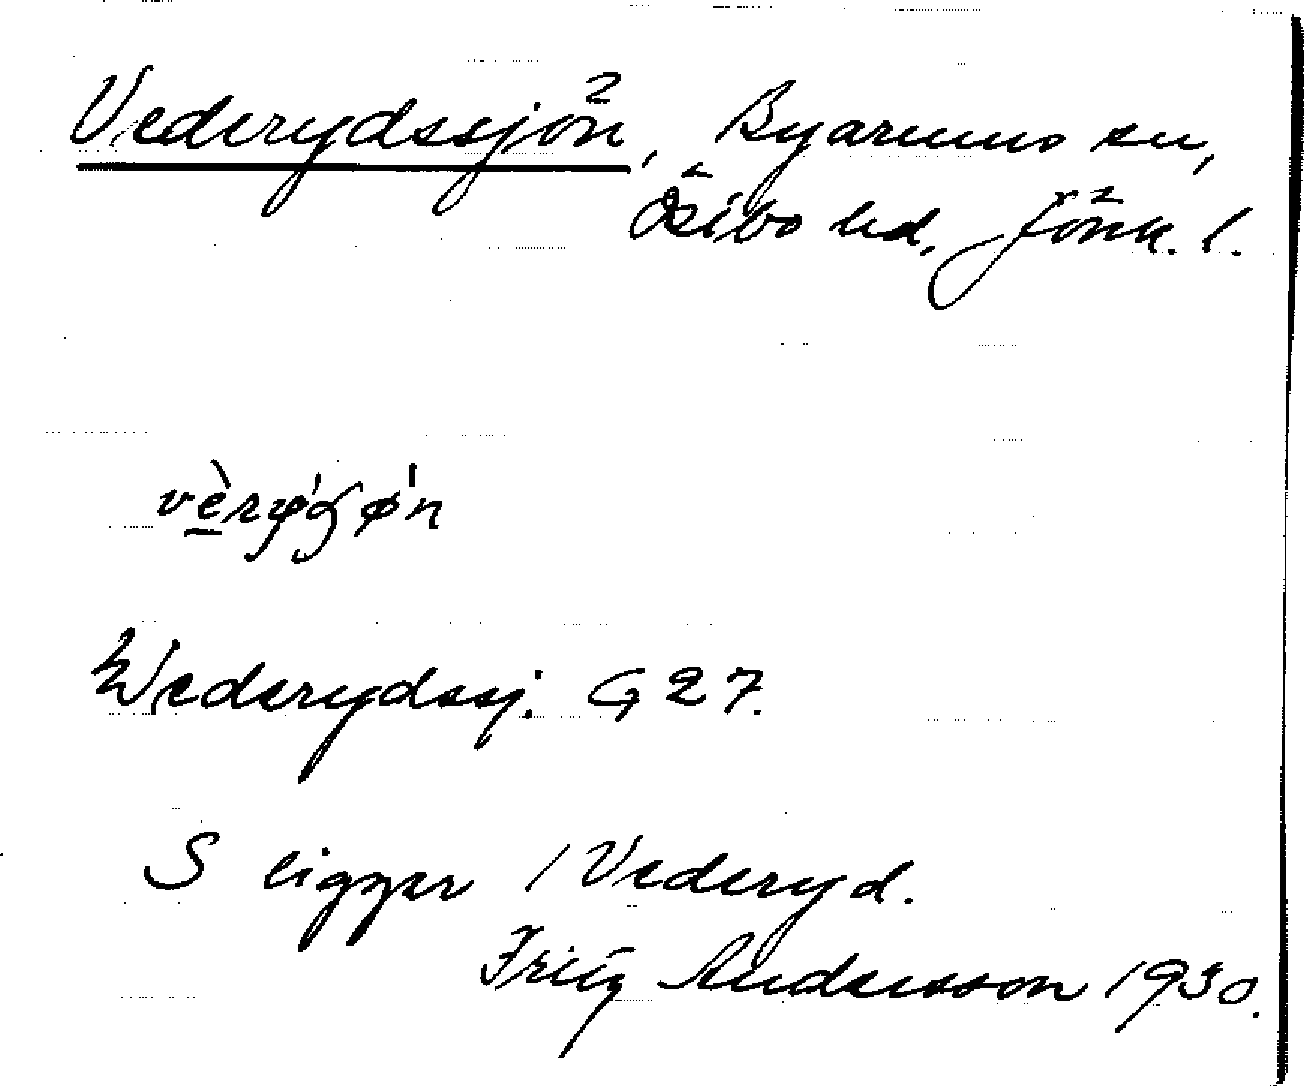 Vederydssjön, Byarums sn,
Östbo hd, Jönk. l.
Wederydssj. G 27.
S ligger / Vederyd.
Andersson 1930.